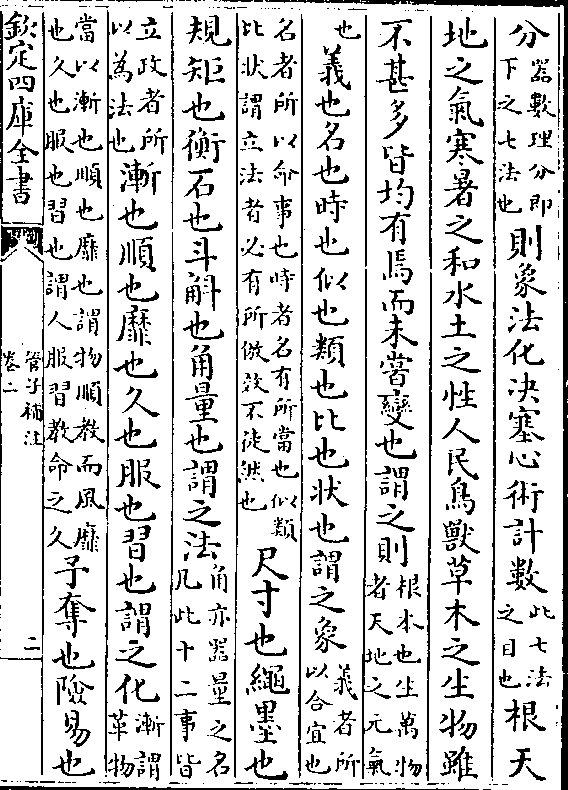 分器數理分即下之七法也則象法化决塞心術計數此七法之目也根天
地之氣寒暑之和水土之性人民鳥獸草木之生物雖
不甚多皆均有焉而未嘗變也謂之則根本也生萬物者天地之元氣
也義也名也時也似也類也比也状也謂之象義者所以合宜也
名者所以命事也時者名有所當也似類比状謂立法者必有所倣效不徒然也尺寸也繩墨也
規矩也衡石也斗斛也角量也謂之法角亦器量之名凡此十二事皆
立政者所以為法也漸也順也靡也久也服也習也謂之化漸謂革物
當以漸也順也靡也謂物順教而風靡也久也服也習也謂人服習教命之久予奪也險易也
欽定四庫全書
管子補注
卷二
二